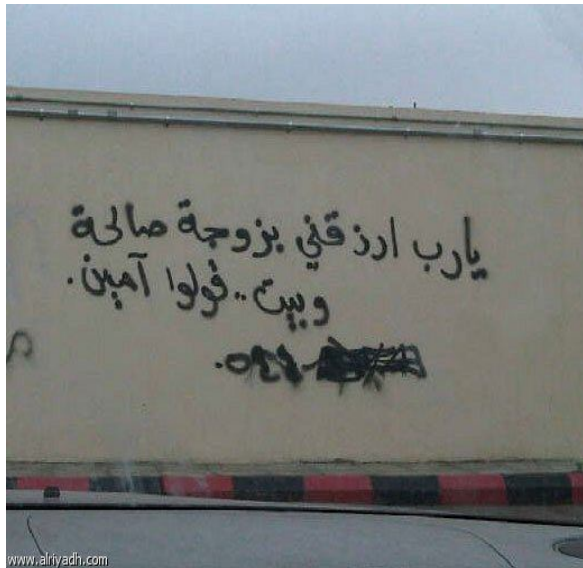 يارب ارزقني بزوجة صالحة
وبيت .. قولوا آمين.
www.alriyadh.com